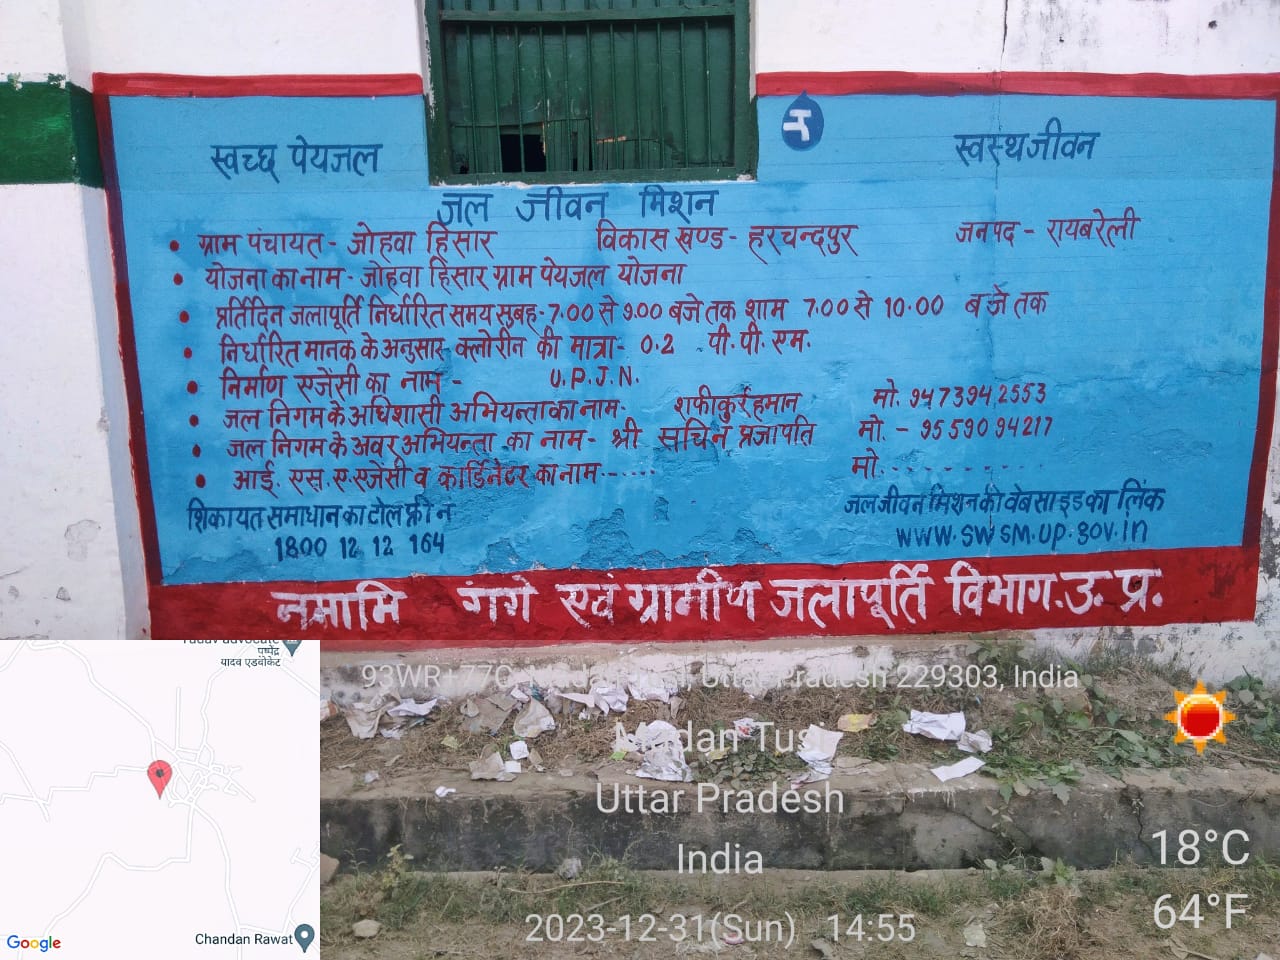 स्वच्छ पेयजल
स्वस्थ जीवन
जल जीवन मिशन
• ग्राम पंचायत - जोहवा हिसार विकास खण्ड - हरचन्दपुर जनपद - रायबरेली
• योजना का नाम - जोहवा हिसार ग्राम पेयजल योजना
• प्रर्तिदिन जलापूर्ति निर्धारित समय सुबह - 7.00 से 9.00 बजे तक शाम 7.00 से 10.00 बजे तक
• निर्धारित मानक के अनुसार क्लोरीन की मात्रा - 0.2 पी.पी.एम.
• निर्माण एजेंसी का नाम - U.P.J.N.
• जल निगम के अधिशासी अभियन्ता का नाम - शफीकुर्रहमान मो. 9473942553
• जल निगम के अवर अभियन्ता का नाम - श्री सचिन प्रजापति मो. - 9559094217
• आई. एस. ए. एजेंसी व कार्डिनेटर का नाम ------ मो. - - - - - - - - - -
शिकायत समाधान का टोल फ्री न
1800 12 12 164
जल जीवन मिशन की वेबसाइड का लिंक
www.swsm.up.gov.in
नमामि गंगे एवं ग्रामीण जलापूर्ति विभाग. उ. प्र.
Yadav advocate
पुष्पेंद्र
यादव एडवोकेट
Chandan Rawat
Google
Uttar Pradesh 229303, India
Uttar Pradesh
India
2023-12-31(Sun) 14:55
18°C
64°F